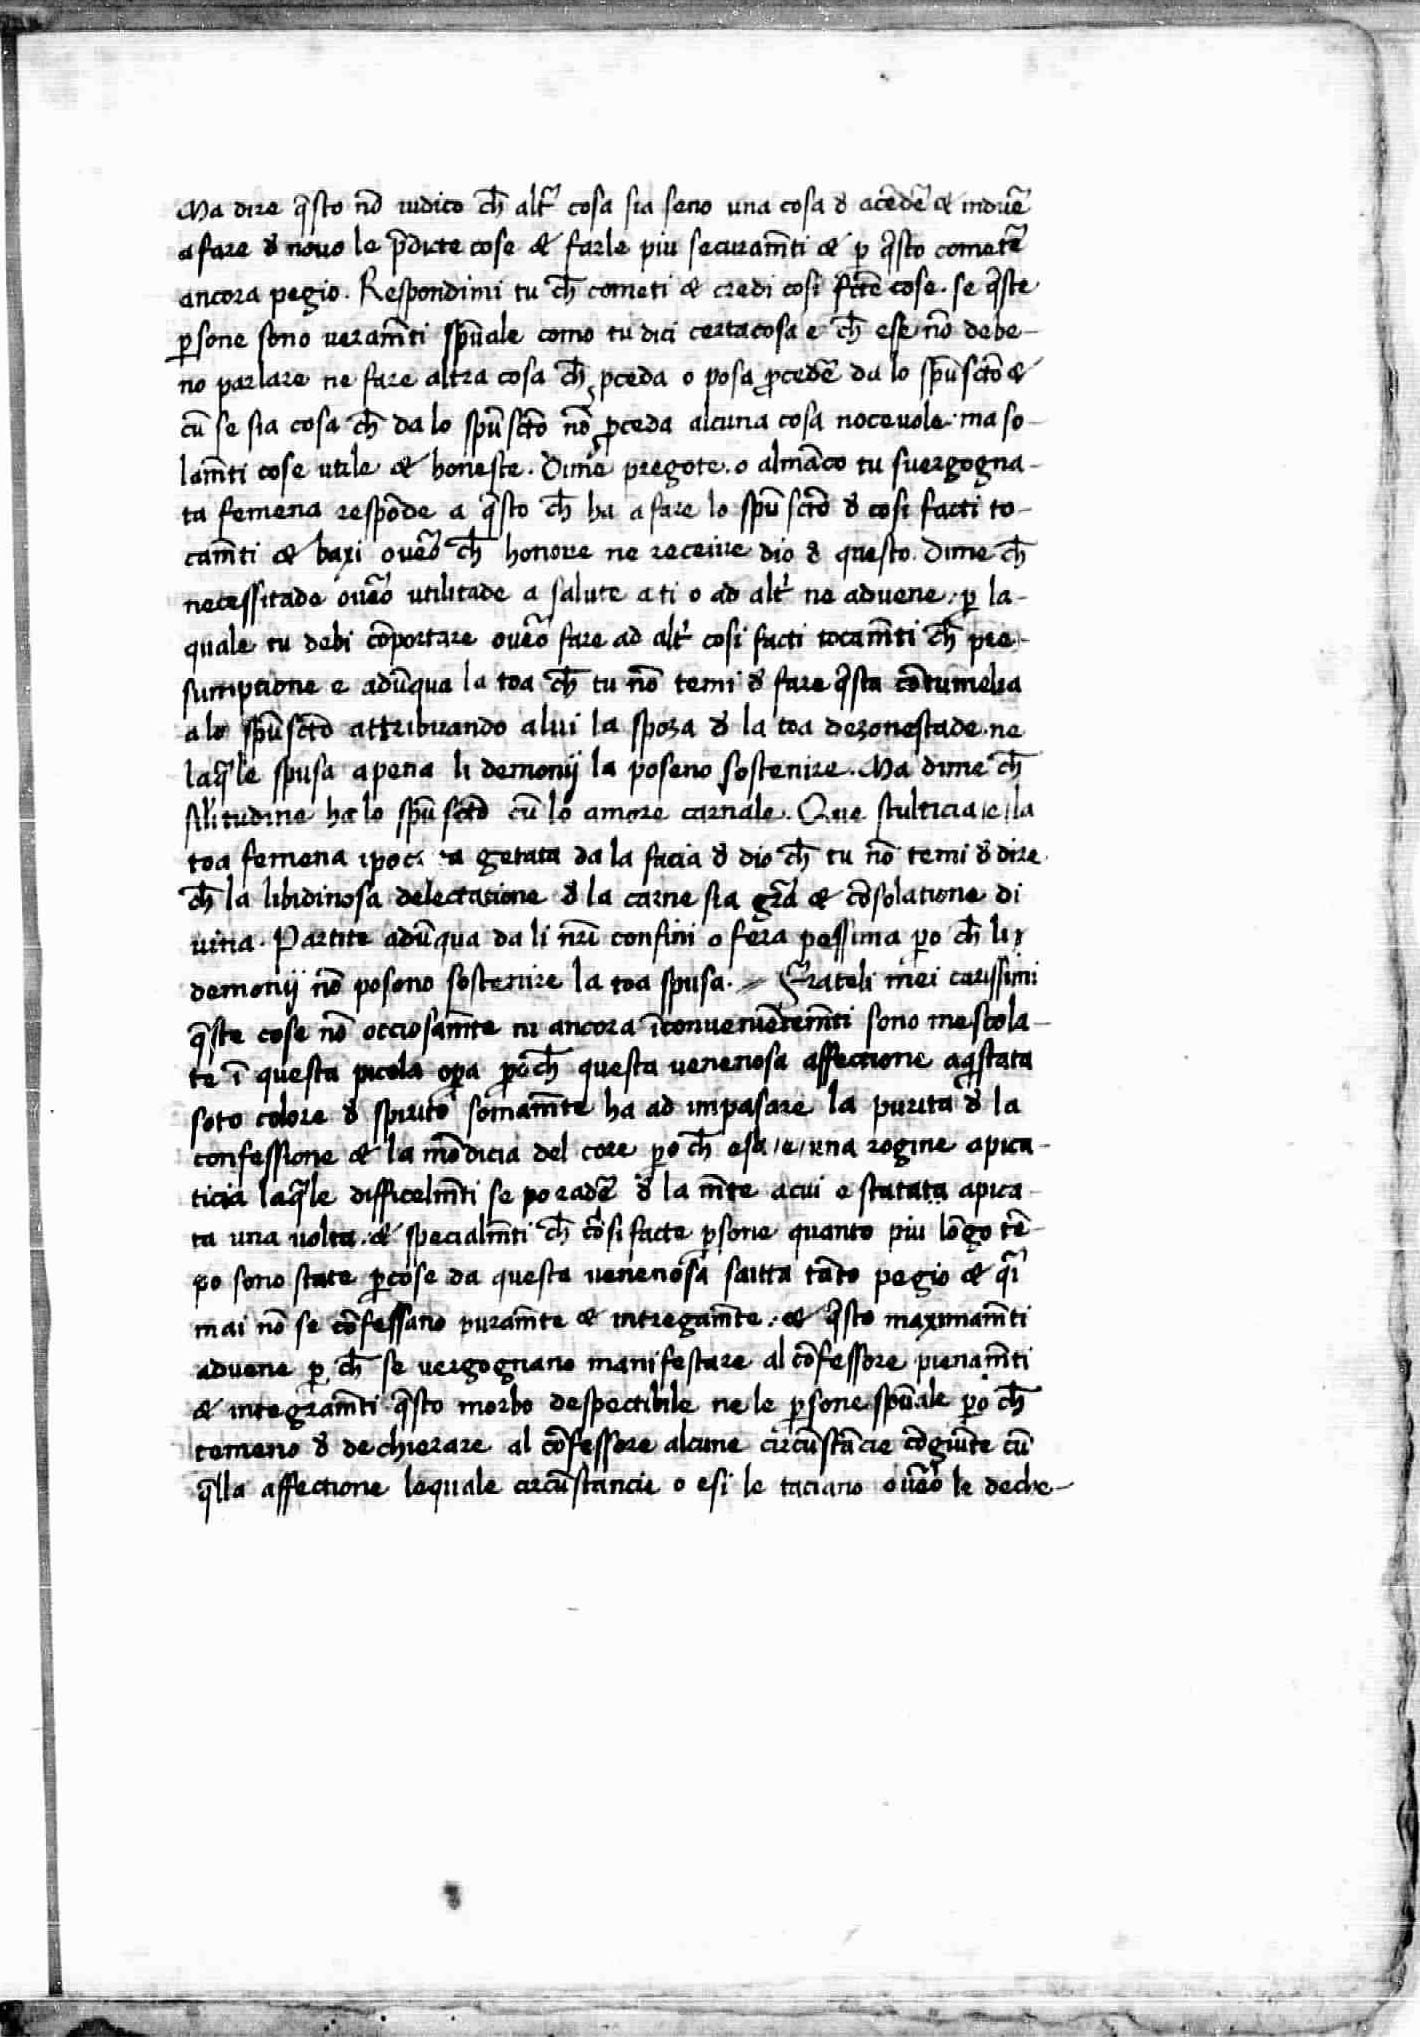 Ma dire q̄sto nō iudico ch̄ altͬ cosa sia seno una cosa đ acēdē & induē
a fare đ nouo le p̄dicte cose & farle piu securam̄ti & ꝑ q̄sto cometē
ancora pegio. Respondimi tu ch̄ cometi & credi cosi fc̄te cose. se q̄ste
ꝑsone sono veram̄ti spūale como tu dici certa cosa e ch̄ ese nō debe-
no parlare ne fare altra cosa ch̄ ꝓceda o posa ꝓcedē da lo spū scto &
cū se sia cosa ch̄ da lo spū scto nō ꝓceda alcuna cosa nocevole. ma so-
lam̄ti cose utile & honeste. Dimē pregote. o almāco tu svergogna-
ta femena respōde a q̄sto ch̄ ha a fare lo spū scto đ cosi facti to-
cam̄ti & baxi oveō ch̄ honore ne receive dio đ questo. Dime ch̄
necessitade oveō utilitade a salute a ti o ad altͥ ne advene. ꝑ la-
quale tu debi cōportare oveō fare ad altͥ cosi facti tocam̄ti ch̄ pre-
sumptione e adūqua la toa ch̄ tu nō temi đ fare q̄sta cōtumelia
a lo spū scto attribuando a lui la spoza đ la toa dezonestade. ne
laq̄le spusa apena li demonij la poseno sostenire. Ma dime ch̄
sil̄itudine ha lo spū scto cū lo amore carnale. Que stulticia /e/ la
toa femena ipoc ta getata da la facia đ dio ch̄ tu nō temi đ dire
ch̄ la libidinosa delectatione đ la carne sia grā & cōsolatione di
vina. Partite adūqua da li nr̄i confini o fera pessima ꝑo ch̄ li
demonij nō posono sostenire la toa spusa. Frateli mei carissimi
q̄ste cose nō occiosam̄te ni ancora īconveniētem̄ti sono mescola-
te ī questa picola oꝑa ꝑoch̄ questa venenosa affectione aq̄stata
soto colore đ spirito somam̄te ha ad impasare la purita đ la
confessione & la mōdicia del core ꝑo ch̄ esa /e/ una rogine apica-
ticia laq̄le difficelm̄ti se po radē đ la m̄te a cui e statata apica-
ta una volta. & specialm̄ti ch̄ cōsi facte ꝑsone quanto piu lōgo tē-
po sono state ꝑcose da questa venenosa saitta tāto pegio & q̄i
mai nō se cōfessano puram̄te & intregam̄te. & q̄sto maximam̄ti
advene ꝑ ch̄ se vergognano manifestare al cōfessore pienam̄ti
& integram̄ti q̄sto morbo despectibile ne le ꝑsone spūale ꝑo ch̄
temeno đ dechierare al cōfessore alcune circūstācie cōgiūte cū
q̄lla affectione lequale circūstancie o esi le taciano oveō le deche-